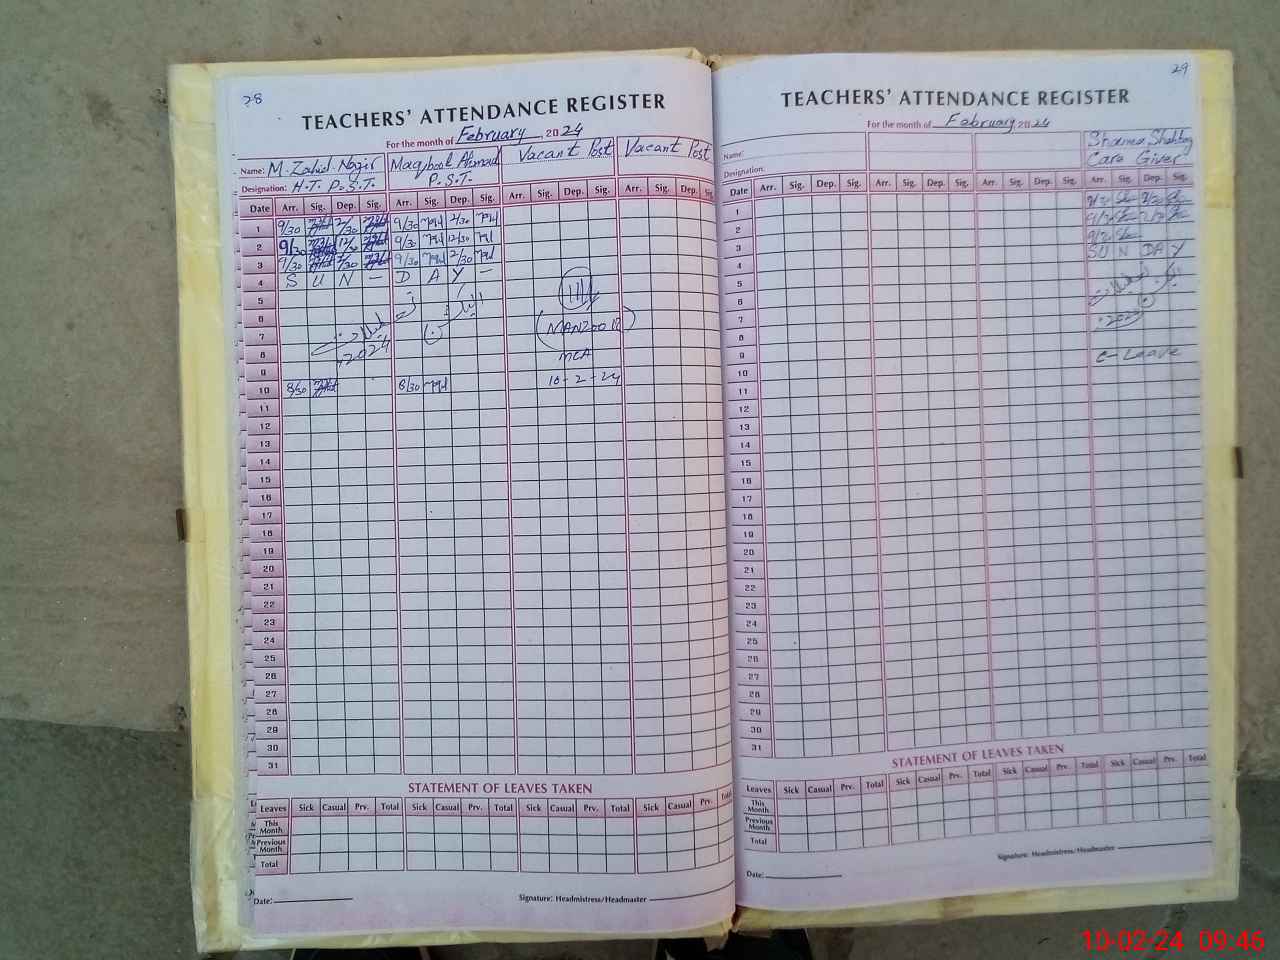 28
TEACHERS' ATTENDANCE REGISTER
For the month of February 2024
Name: M. Zahid Nazir Maqbool Ahmad Vacant Post Vacant Post
Designation: H.T. P.S.T. P.S.T.
Date Arr. Sig. Dep. Sig. Arr. Sig. Dep. Sig. Arr. Sig. Dep. Sig. Arr. Sig. Dep. Sig.
1 9/30 2/30 9/30 2/30
2 9/30 12/30 9/30 12/30
3 9/30 2/30 9/30 2/30
4 S U N - D A Y -
5
6
7 (MANZOOR)
8 2024
9 MCA
10 8/30 8/30 10-2-24
11
12
13
14
15
16
17
18
19
20
21
22
23
24
25
26
27
28
29
30
31
STATEMENT OF LEAVES TAKEN
Leaves Sick Casual Prv. Total Sick Casual Prv. Total Sick Casual Prv. Total Sick Casual Prv. Total
This Month
Previous Month
Total
Date:
Signature: Headmistress/Headmaster
29
TEACHERS' ATTENDANCE REGISTER
For the month of February 2024
Name:
Designation: Care Giver
Date Arr. Sig. Dep. Sig. Arr. Sig. Dep. Sig. Arr. Sig. Dep. Sig. Arr. Sig. Dep. Sig.
1 9/30 2/30
2 9/30 2/30
3 9/30
4 S U N DA Y
5
6
7
8 2024
9
10 C-Leave
11
12
13
14
15
16
17
18
19
20
21
22
23
24
25
26
27
28
29
30
31
STATEMENT OF LEAVES TAKEN
Leaves Sick Casual Prv. Total Sick Casual Prv. Total Sick Casual Prv. Total Sick Casual Prv. Total
This Month
Previous Month
Total
Signature: Headmistress/Headmaster
Date:
10-02-24 09:46